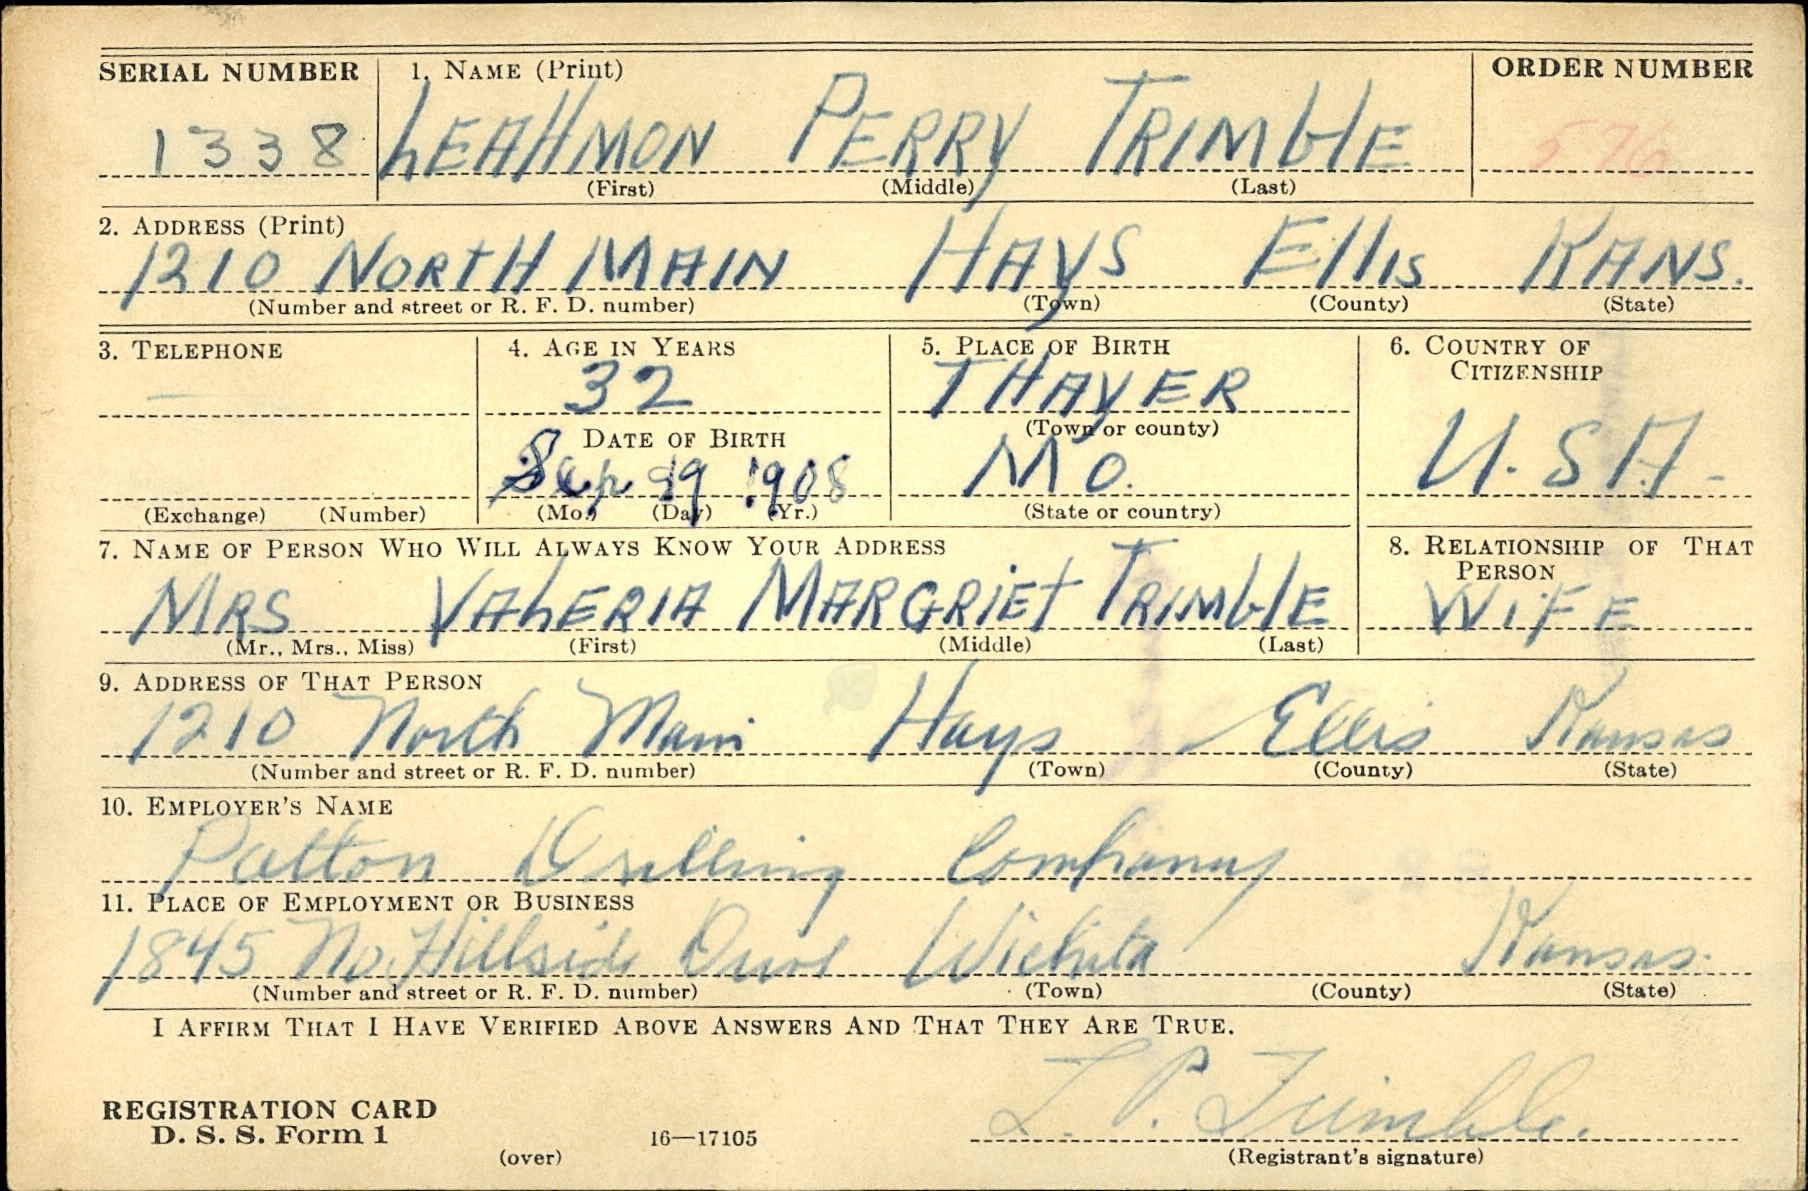 SERIAL NUMBER 1. NAME (Print) ORDER NUMBER
1338 LEAHMON PERRY TRIMBLE 576
(First) (Middle) (Last)
2. ADDRESS (Print)
1210 NORTH MAIN HAYS Ellis KANS.
(Number and street or R. F. D. number) (Town) (County) (State)
3. TELEPHONE 4. AGE IN YEARS 5. PLACE OF BIRTH 6. COUNTRY OF CITIZENSHIP
— 32 THAYER
(Town or county)
DATE OF BIRTH U.S.A-
Sep 1908 MO.
(Exchange) (Number) (Mo.) (Day) (Yr.) (State or country)
7. NAME OF PERSON WHO WILL ALWAYS KNOW YOUR ADDRESS 8. RELATIONSHIP OF THAT PERSON
MRS VALERIA MARGRIET TRIMBLE WIFE
(Mr., Mrs., Miss) (First) (Middle) (Last)
9. ADDRESS OF THAT PERSON
1210 North Main Hays Ellis Kansas
(Number and street or R. F. D. number) (Town) (County) (State)
10. EMPLOYER'S NAME
Patton Drilling Company
11. PLACE OF EMPLOYMENT OR BUSINESS
1845 No. Hillside Drive Wichita Kansas.
(Number and street or R. F. D. number) (Town) (County) (State)
I AFFIRM THAT I HAVE VERIFIED ABOVE ANSWERS AND THAT THEY ARE TRUE.
L. P. Trimble.
REGISTRATION CARD
D. S. S. Form 1 16—17105
(over) (Registrant's signature)